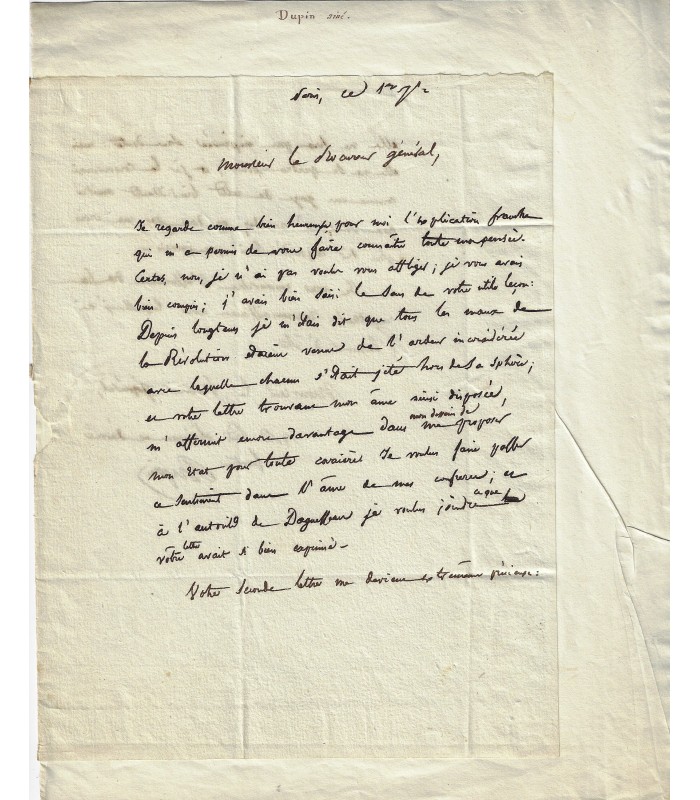 Dupin aîné.
Paris, ce 1er 7bre
Monsieur le Procureur général,
Je regarde comme bien heureuse pour moi l'explication franche
qui m'a permis de vous faire connaître toute ma pensée.
Certes, non, je n'ai pas voulu vous affliger; je vous avais
bien compris; j'avais bien saisi le sens de votre utile leçon:
Depuis longtems je m'étais dit que tous les maux de
la Révolution étaient venus de l'ardeur inconsidérée
avec laquelle chacun s'était jeté hors de sa sphère;
et votre lettre trouvant mon âme ainsi disposée,
m'affermit encore davantage dans mon dessein de me proposer
mon état pour toute carrière. Je voulus faire passer
ce sentiment dans l'âme de mes confrères; et
à l'autorité de Daguesseau je voulus joindre ce que
votre lettre avait si bien exprimé -
Votre seconde lettre me devient extrêmement précieuse: